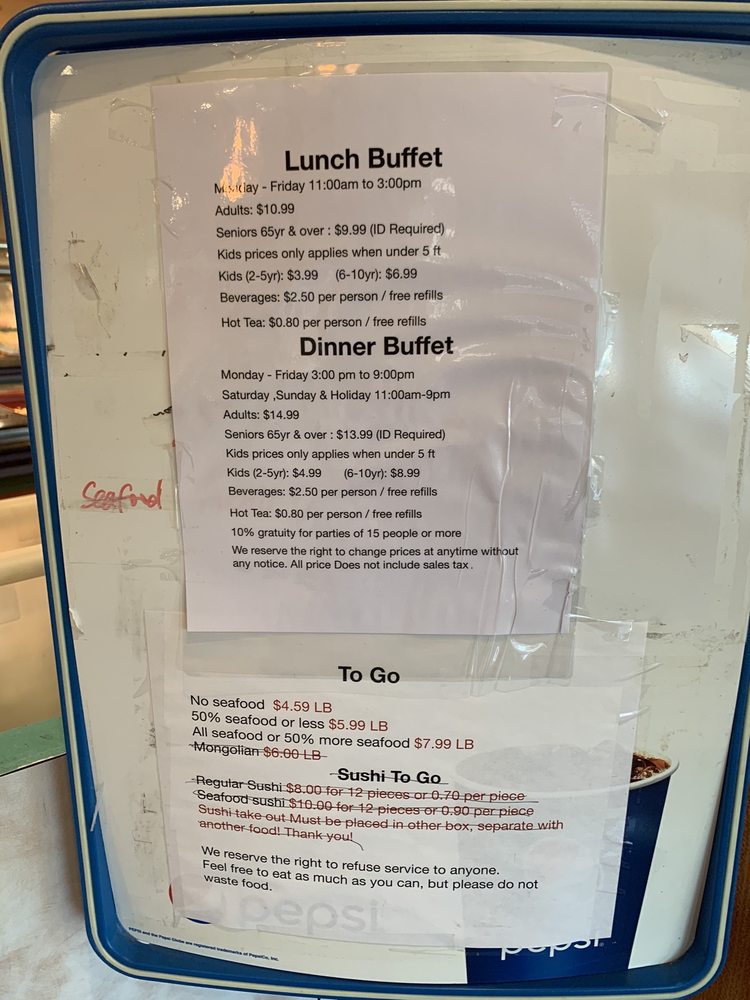 Lunch Buffet
Monday - Friday 11:00am to 3:00pm
Adults: $10.99
Seniors 65yr & over : $9.99 (ID Required)
Kids prices only applies when under 5 ft
Kids (2-5yr): $3.99 (6-10yr): $6.99
Beverages: $2.50 per person / free refills
Hot Tea: $0.80 per person / free refills
Dinner Buffet
Monday - Friday 3:00 pm to 9:00pm
Saturday ,Sunday & Holiday 11:00am-9pm
Adults: $14.99
Seniors 65yr & over : $13.99 (ID Required)
Kids prices only applies when under 5 ft
Kids (2-5yr): $4.99 (6-10yr): $8.99
Beverages: $2.50 per person / free refills
Seafood
Hot Tea: $0.80 per person / free refills
10% gratuity for parties of 15 people or more
We reserve the right to change prices at anytime without
any notice. All price Does not include sales tax.
To Go
No seafood $4.59 LB
50% seafood or less $5.99 LB
All seafood or 50% more seafood $7.99 LB
Mongolian $6.00 LB
Sushi To Go
Regular Sushi $8.00 for 12 pieces or 0.70 per piece
Seafood sushi $10.00 for 12 pieces or 0.90 per piece
Sushi take out Must be placed in other box, separate with
another food! Thank you!
We reserve the right to refuse service to anyone.
Feel free to eat as much as you can, but please do not
waste food.
pepsi
pepsi
PEPSI and the Pepsi Globe are registered trademarks of PepsiCo, Inc.